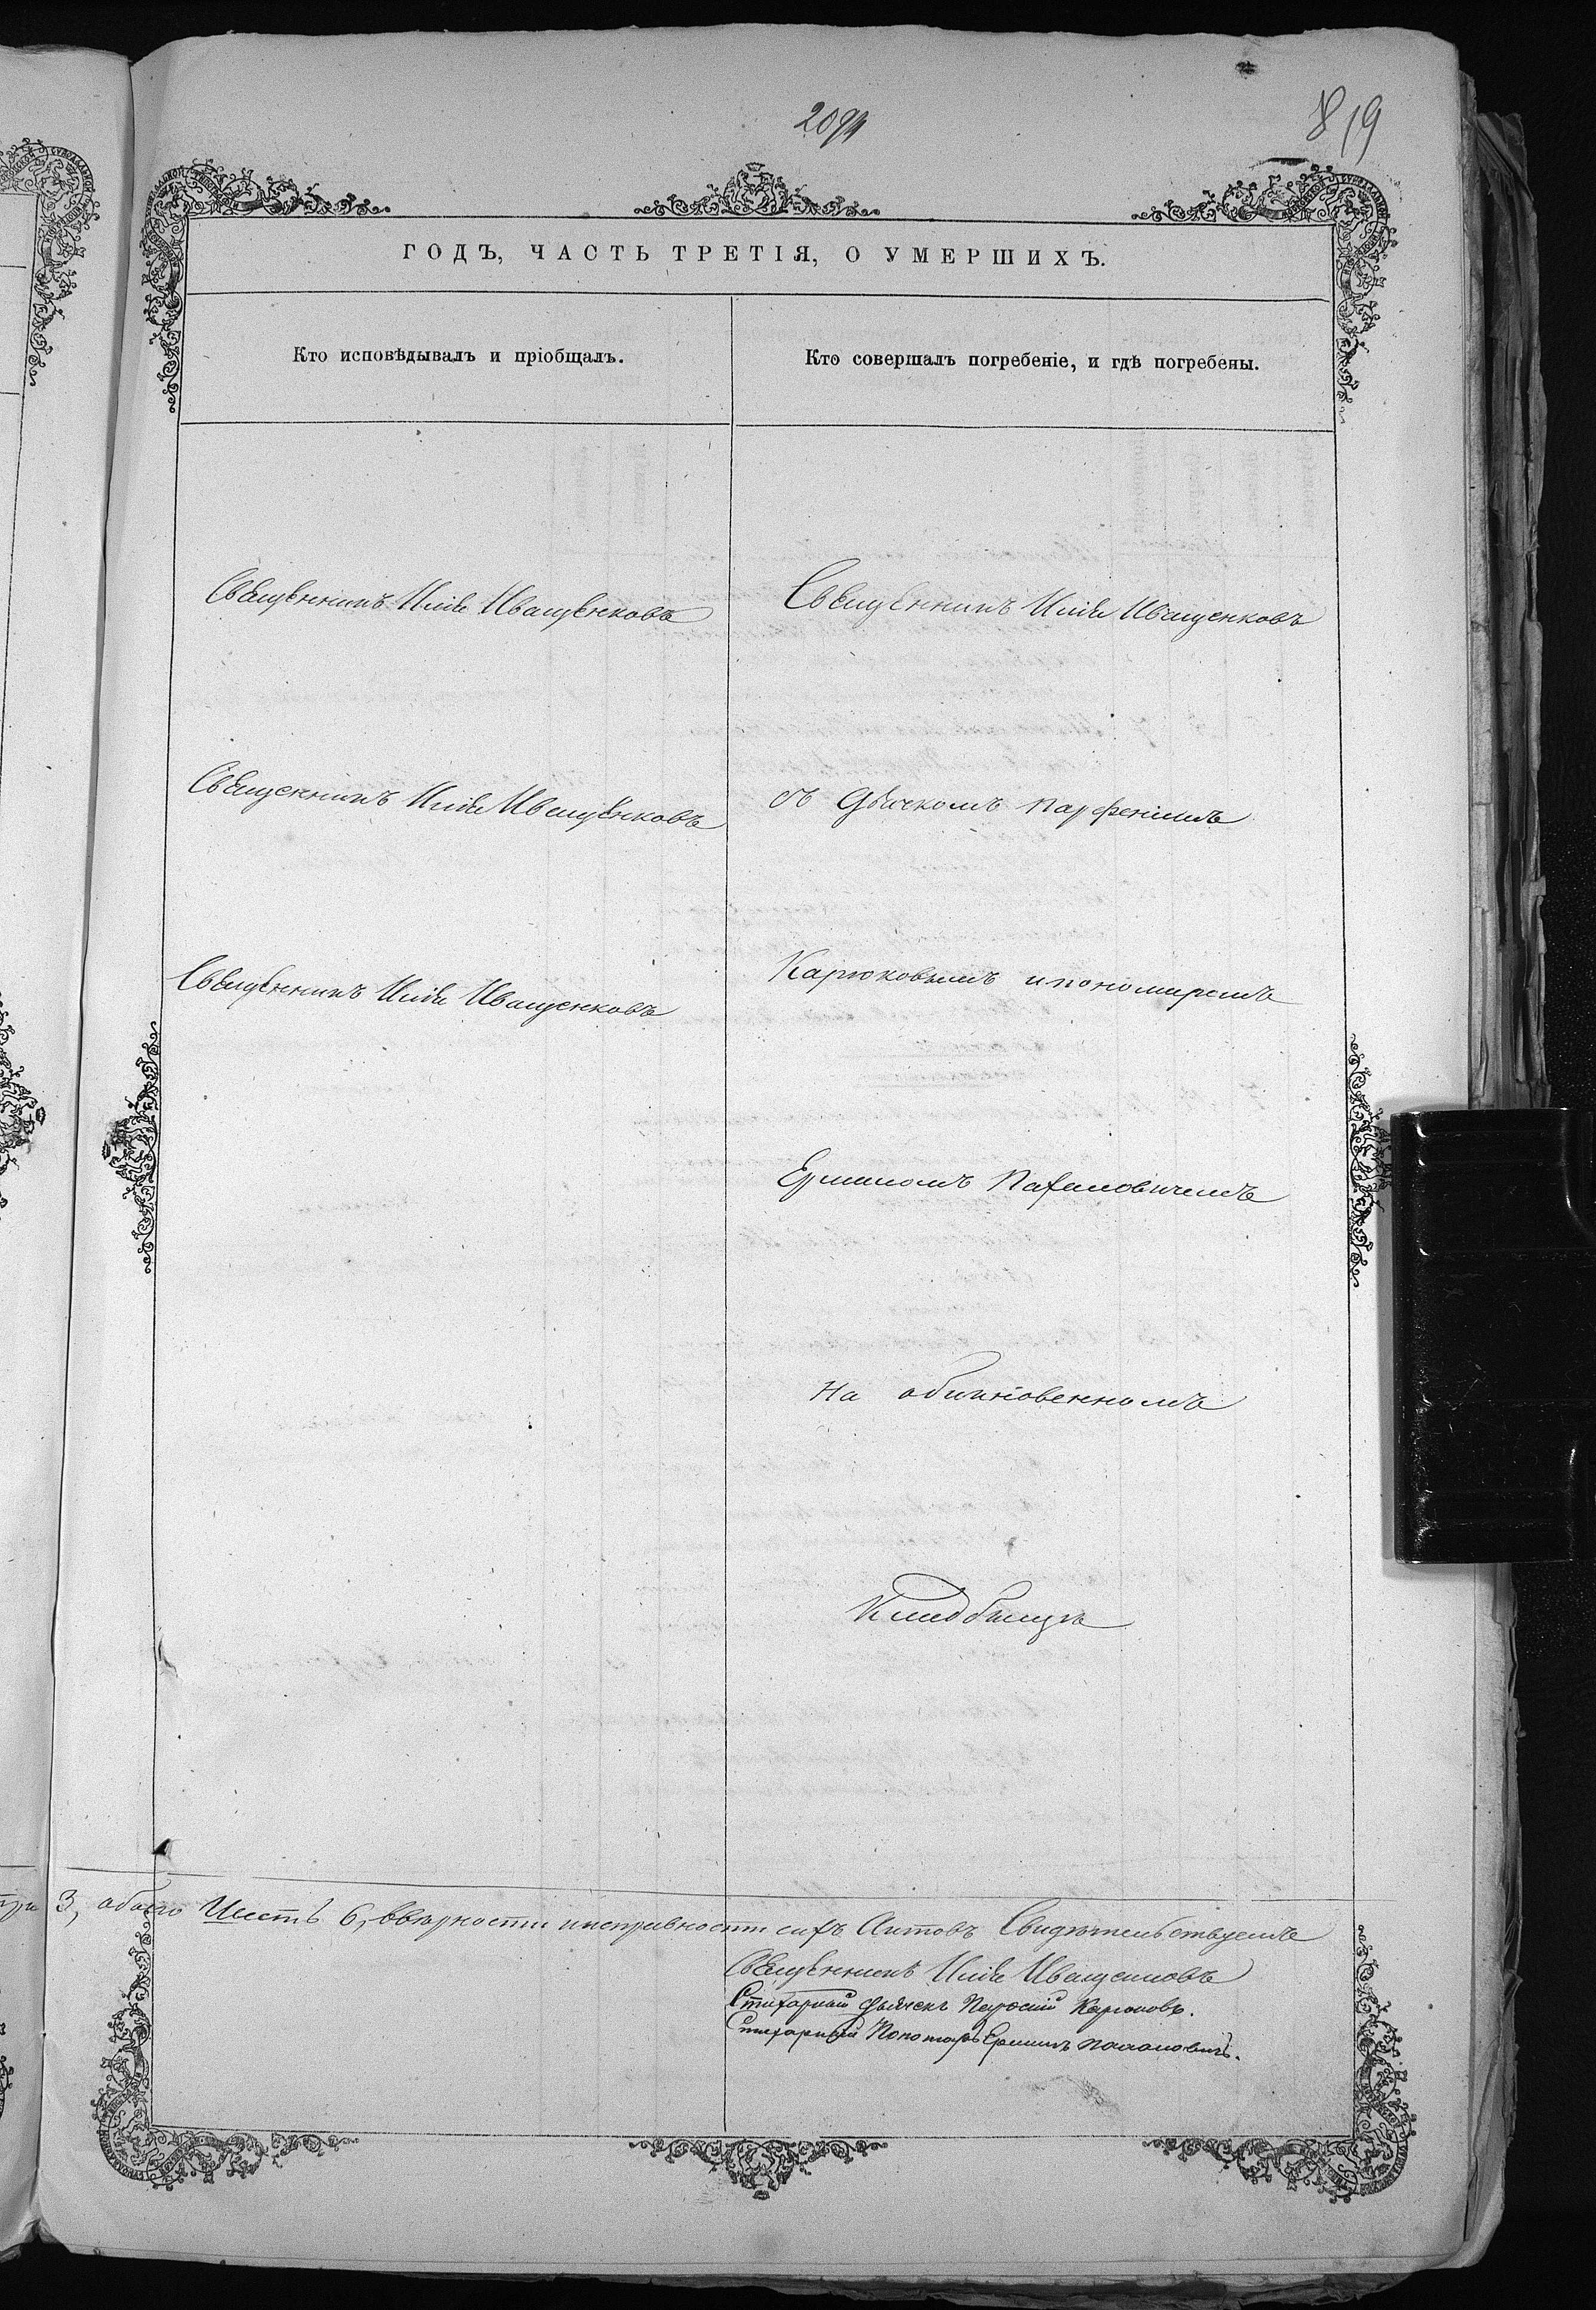 819
ГОДЪ, ЧАСТЬ ТРЕТІЯ, О УМЕРШИХЪ.
Кто исповѣдывалъ и пріобщалъ.
Кто совершалъ погребеніе, и гдѣ погребены.
Священникъ Илія Иващенковъ
Священникъ Илія Иващенковъ
Священникъ Илія Иващенковъ
Священникъ Илія Иващенковъ
съ Дьячкомъ Парфеніемъ
Карюковымъ и пономаремъ
На обыкновенномъ
Кладбищѣ
3, обоего Шесть 6, ввѣрности иисправности сихъ Актовъ Свидѣтельствуемъ
Священникъ Илія Иващенковъ
Стихарный Дьячекъ Карюковъ.
Стихарный Пономарь